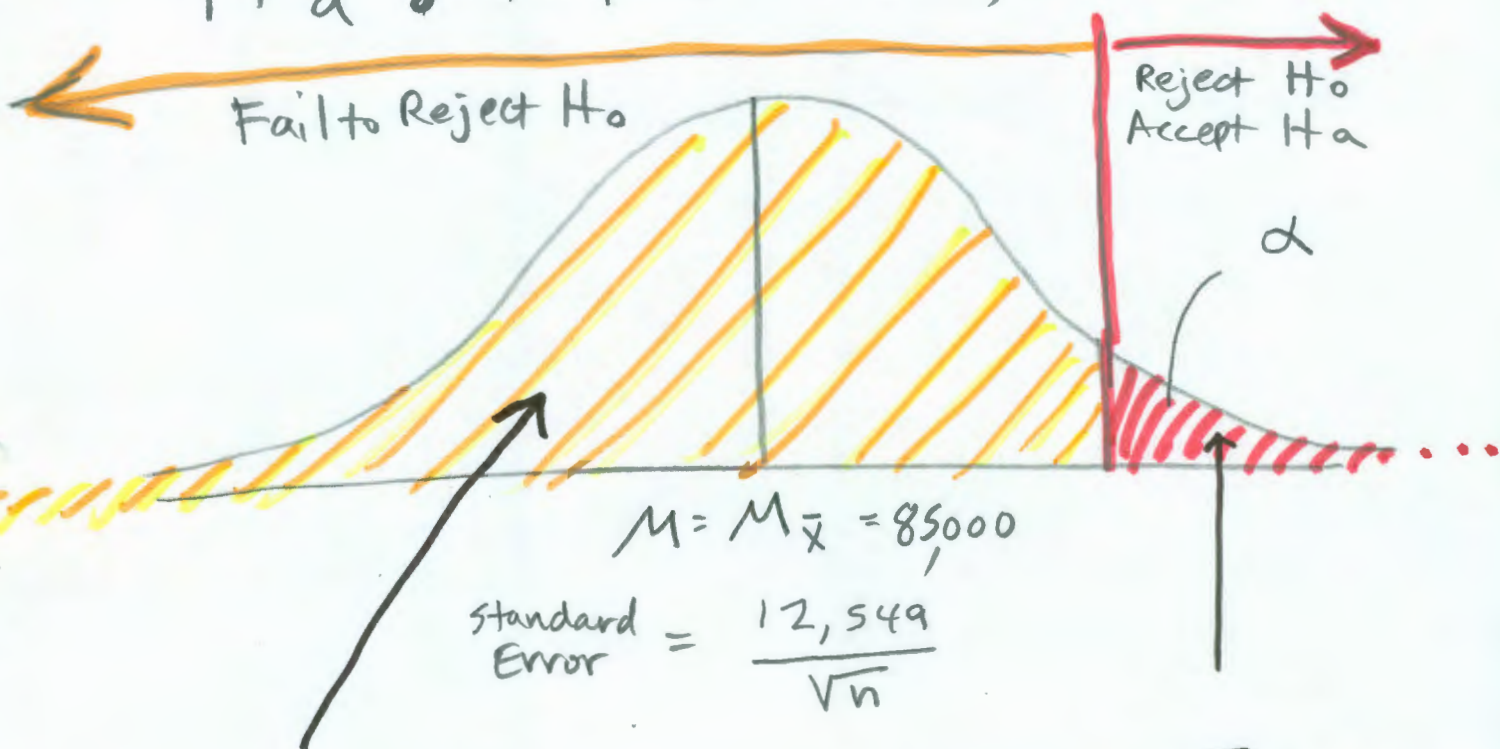 Fail to Reject H₀
Reject H₀
Accept Ha
α
μ = μx̄ = 85,000
Standard
Error = 12,549
√n